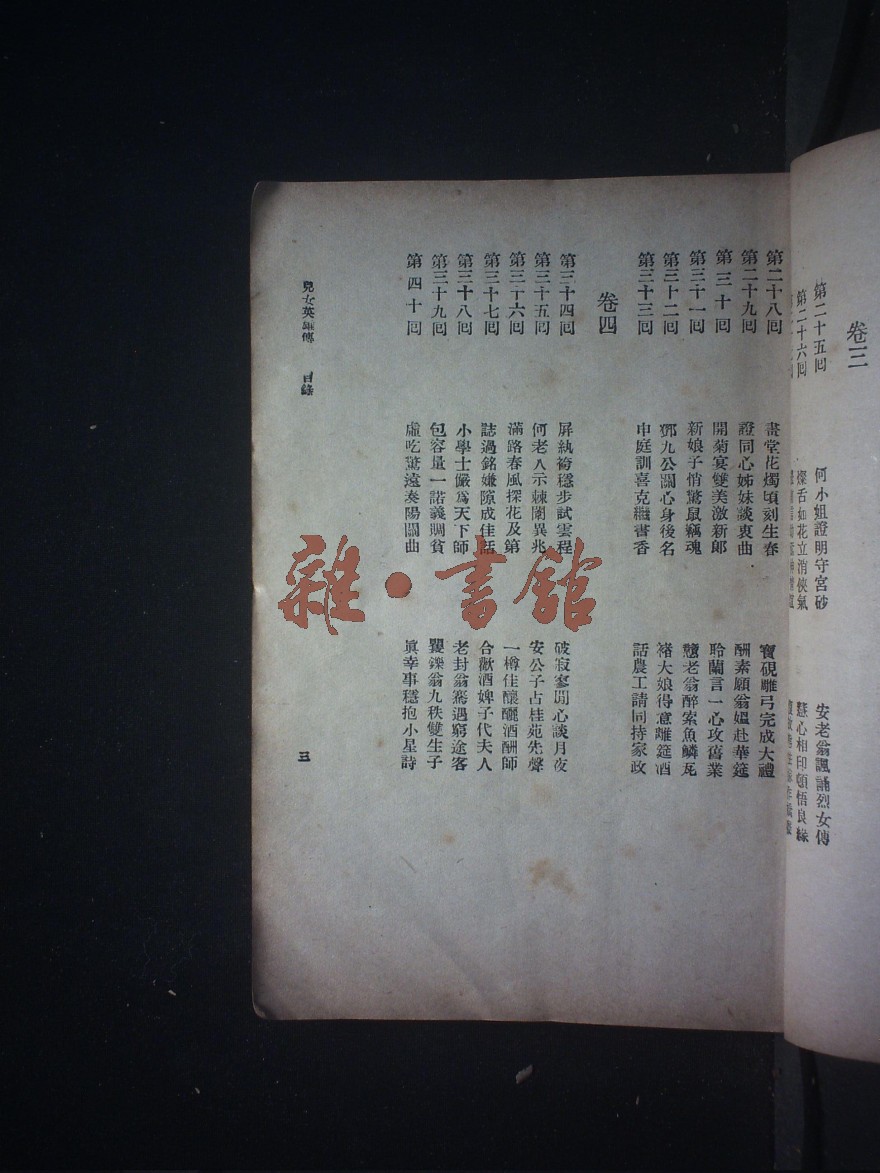 卷三
第二十五回 何小姐證明守宮砂 安老翁諷誦烈女傳
第二十六回 燦舌如花立消俠氣 慧心相印頓悟良緣
第二十八回 畫堂花燭頃刻生春 寶硯雕弓完成大禮
第二十九回 證同心姊妹談衷曲 酬素願翁媼赴華筵
第三十回 開菊宴雙美激新郎 聆蘭言一心攻舊業
第三十一回 新娘子悄驚鼠竊魂 戇老翁醉索魚鱗瓦
第三十二回 鄧九公關心身後名 褚大娘得意離筵酒
第三十三回 申庭訓喜克繼書香 話農工請同持家政
卷四
第三十四回 屏紈袴穩步試雲程 破寂寥閒心談月夜
第三十五回 何老人示棘闈異兆 安公子占桂苑先聲
第三十六回 滿路春風探花及第 一樽佳釀釃酒酬師
第三十七回 誌過銘嫌隙成佳話 合歡酒婢子代夫人
第三十八回 小學士儼爲天下師 老封翁驀遇窮途客
第三十九回 包容量一諾義賙貧 矍鑠翁九秩雙生子
第四十回 虛吃驚遠奏陽關曲 眞幸事穩抱小星詩
兒女英雄傳 目錄
三
雜·書館